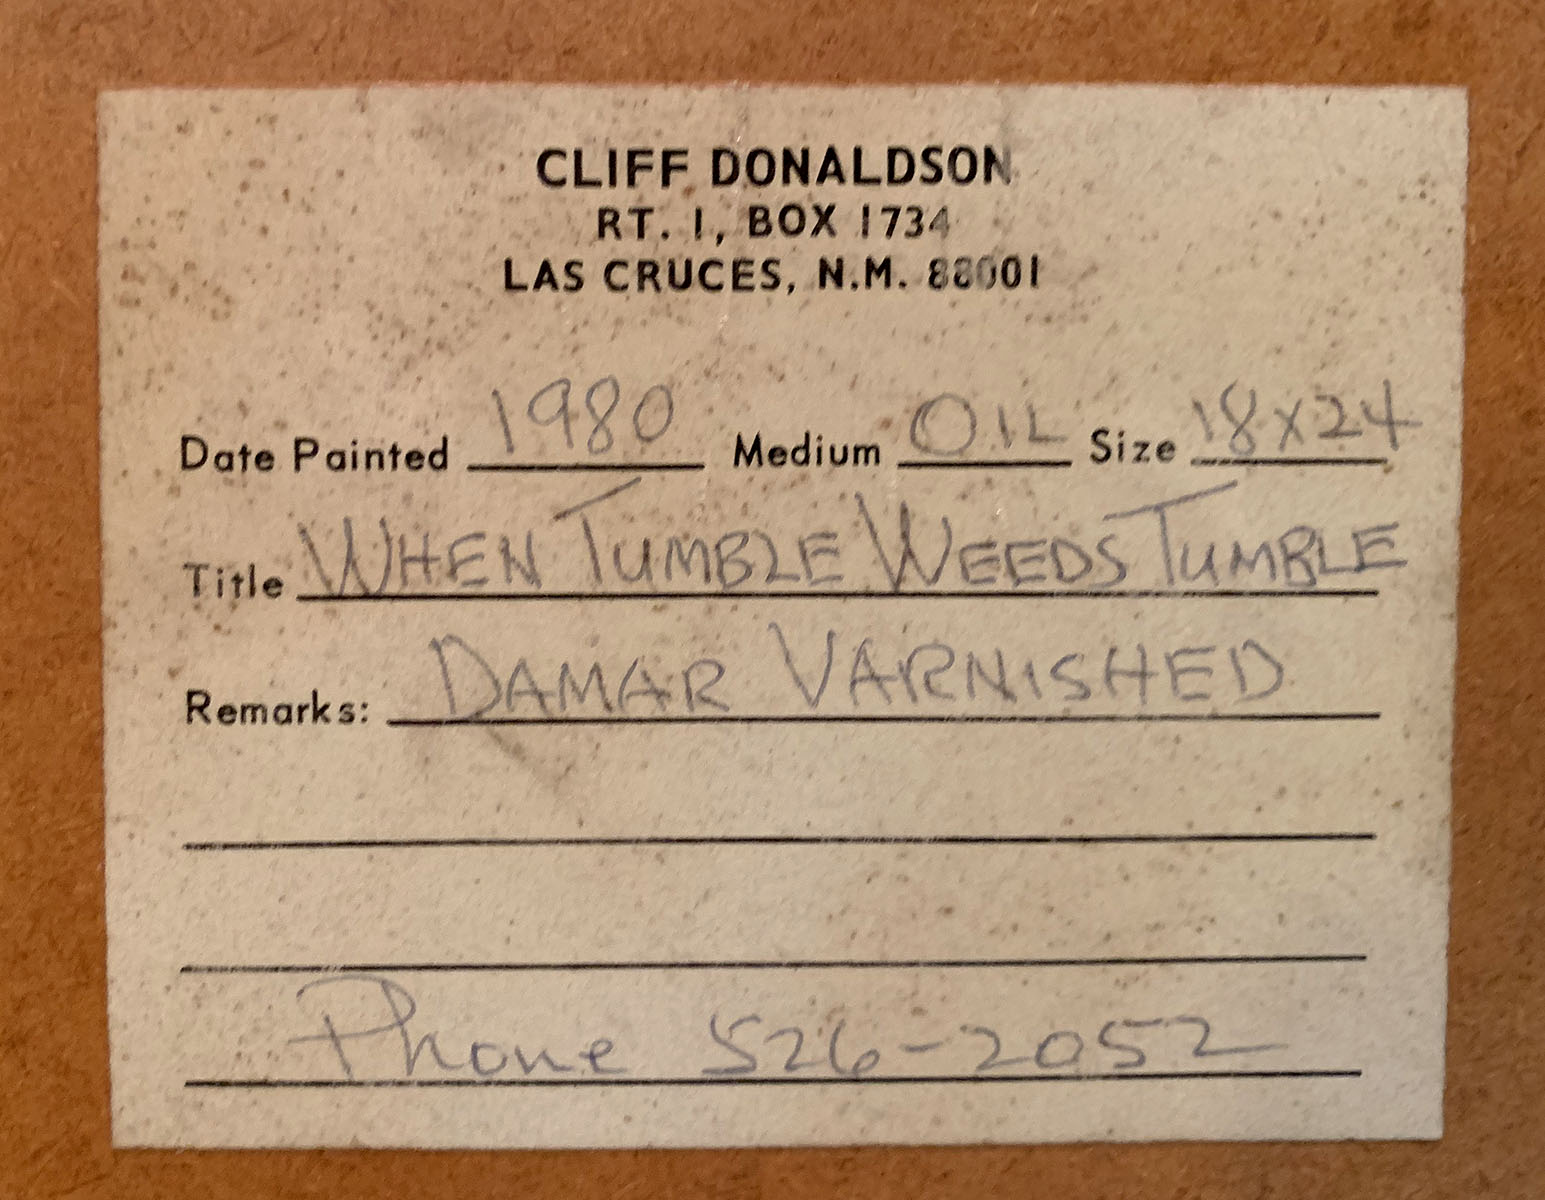 CLIFF DONALDSON
RT. 1, BOX 1734
LAS CRUCES, N.M. 88001
Date Painted 1980 Medium OIL Size 18x24
Title WHEN TUMBLE WEEDS TUMBLE
Remarks: DAMAR VARNISHED
Phone 526-2052